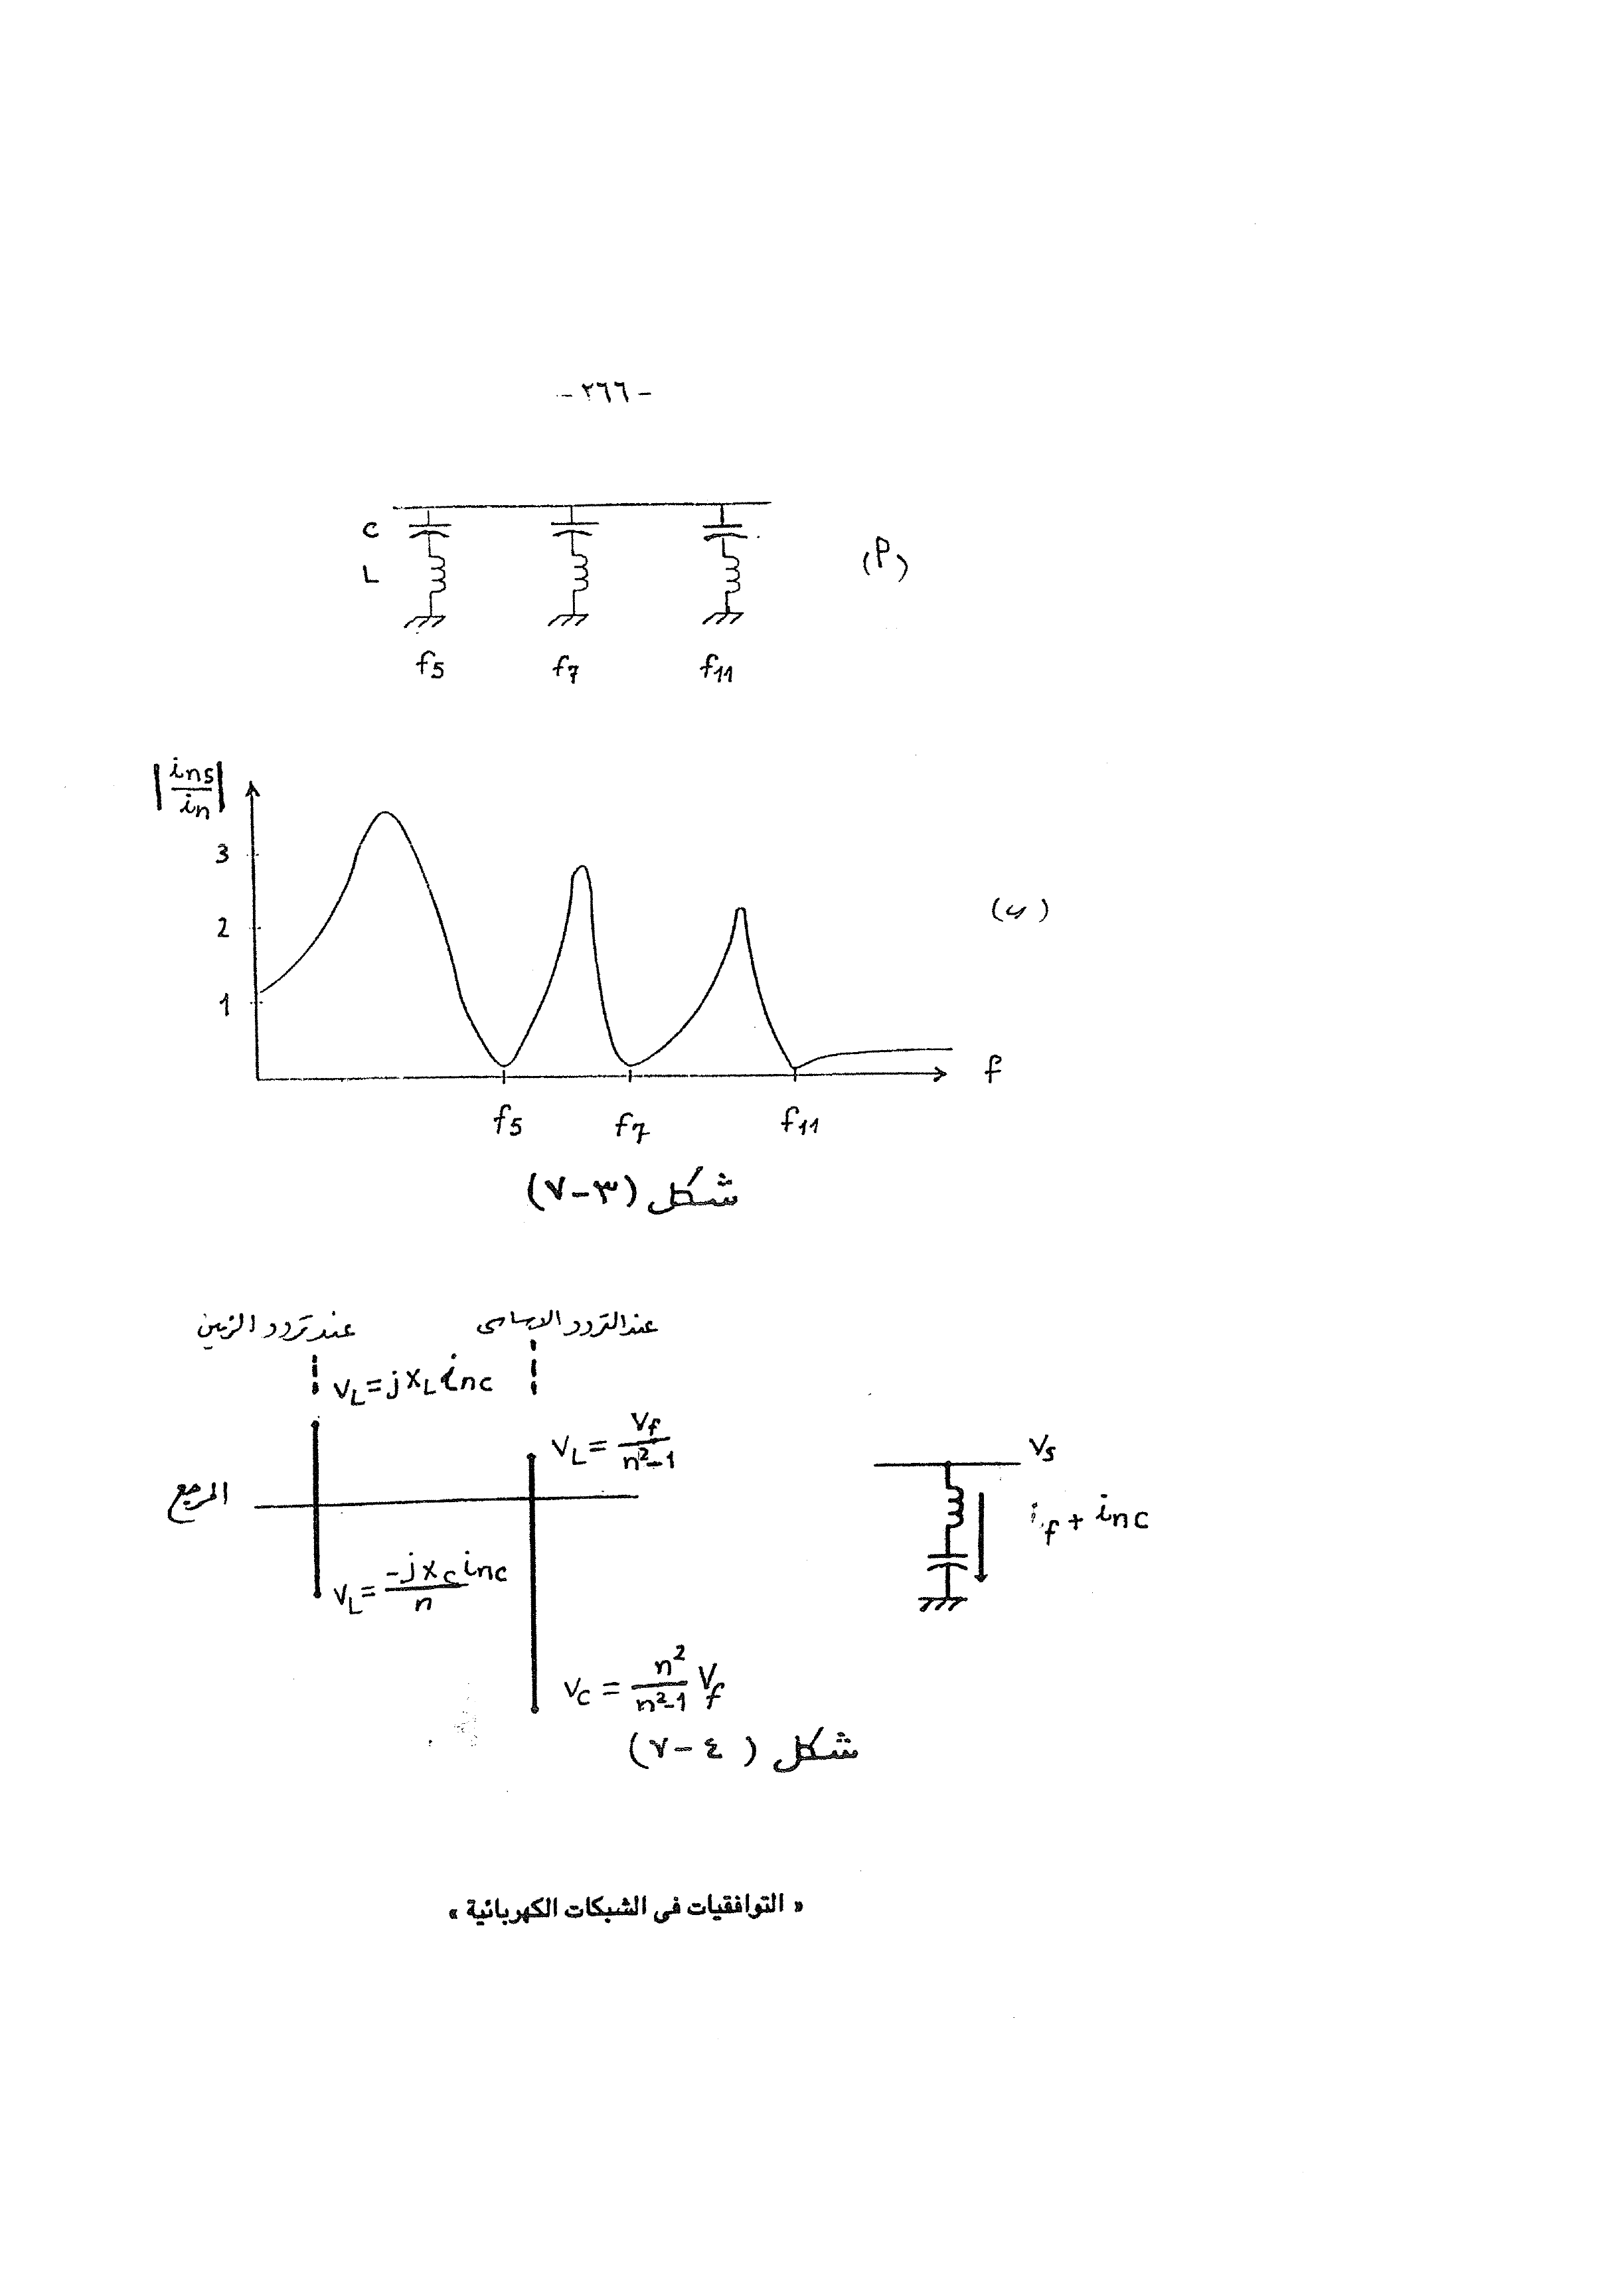 - ٢٦٦ -
C
L
(أ)
f5 f7 f11
|ins/in|
3
2
1
(ب)
f
f5 f7 f11
شكل (٣-٧)
عند تردد الرنين عند التردد الاساسى
VL=jXL inc
VL = Vf/n²-1
Vs
المرجع
if + inc
VL = -jXc inc/n
Vc = n²/n²-1 Vf
شكل (٤-٧)
« التوافقيات فى الشبكات الكهربائية »